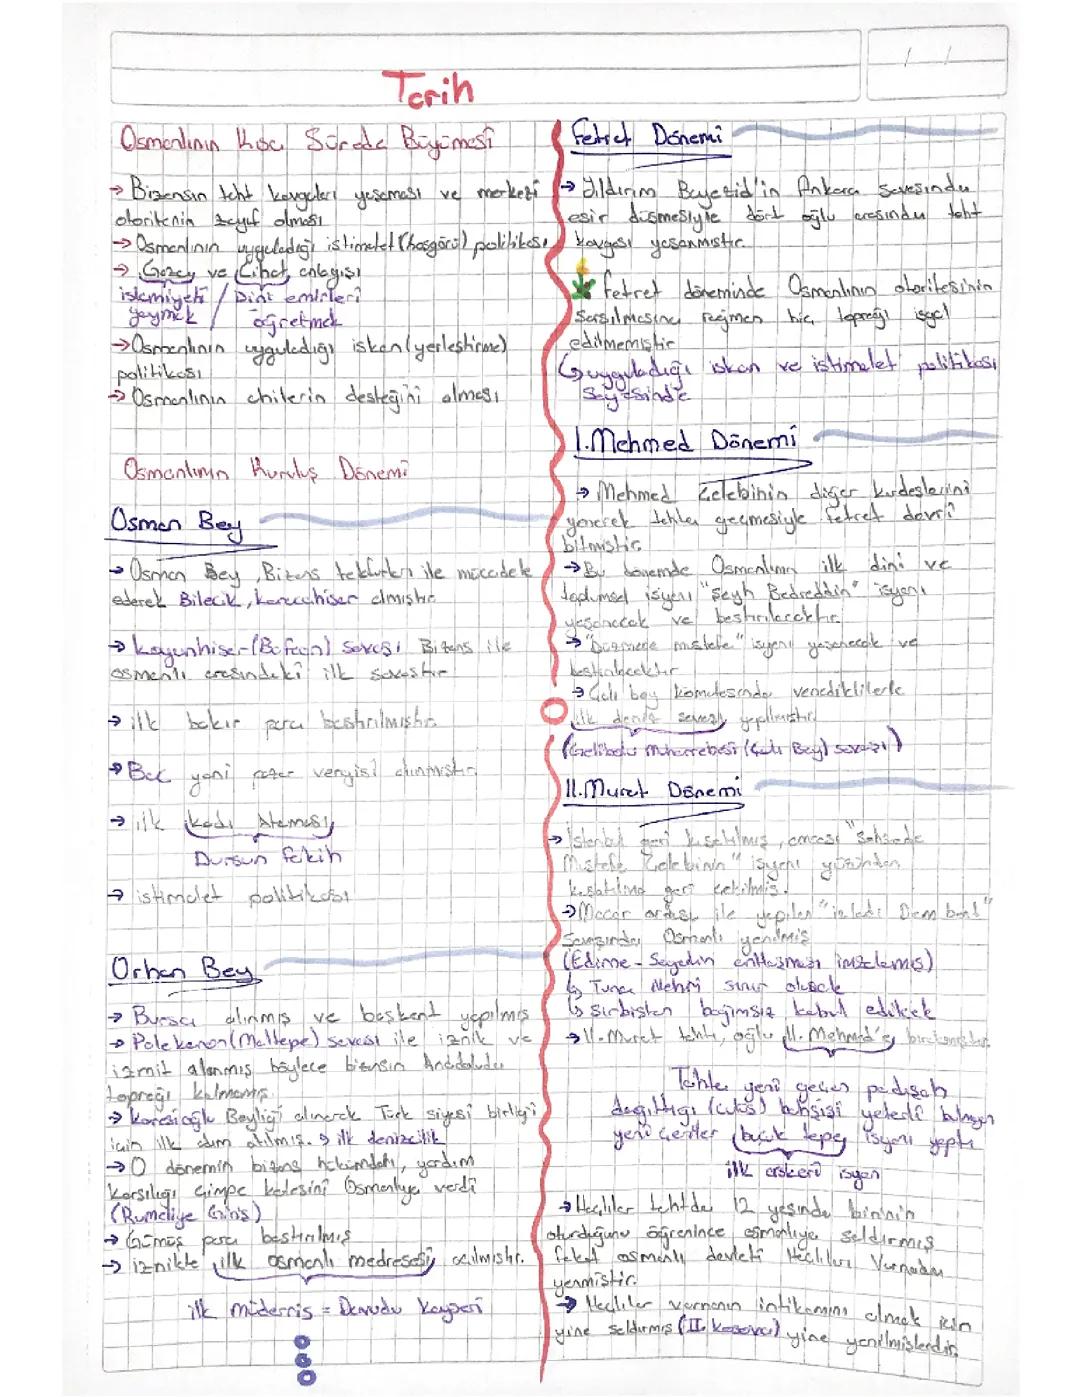 Tarih
Osmanlının Kısa Sürede Büyümesi
→ Bizansın taht kavgaları yaşaması ve merkezi
otoritenin zayıf olması
→ Osmanlının uyguladığı istimalet (hoşgörü) politikası
→ Gazay ve Cihat anlayışı
islamiyeti / Dini emirleri
yaymak / öğretmek
→ Osmanlının uyguladığı iskan (yerleştirme)
politikası
→ Osmanlının ahilerin desteğini alması
Osmanlının Kuruluş Dönemi
Osman Bey
→ Osman Bey, Bizans tekfurları ile mücadele
ederek Bilecik, karacahisar almıştır
→ koyunhisar (Bafeon) savaşı Bizans ile
osmanlı arasındaki ilk savaştır
→ ilk bakır para bastırılmıştır
→ Bac yani pazar vergisi alınmıştır
→ ilk kadı Ataması
Dursun fakih
→ istimalet politikası
Orhan Bey
→ Bursa alınmış ve başkent yapılmış
→ Palekanon (Maltepe) savaşı ile iznik ve
izmit alanmış böylece bizansın Anadoluda
toprağı kalmamış
→ karesioğlu Beyliği alınarak Türk siyasi birliği
için ilk adım atılmış. → ilk denizcilik
→ O dönemin bizans hakimdarı, yardım
karşılığı Çimpe kalesini Osmanlıya verdi
(Rumeliye Giriş)
→ Gümüş para bastırılmış
→ iznikte ilk osmanlı medresesi açılmıştır.
ilk müderris = Davudu kayseri
Fetret Dönemi
→ Yıldırım Bayezid'in Ankara savaşında
esir düşmesiyle dört oğlu arasında taht
kavgası yaşanmıştır.
fetret döneminde Osmanlının otoritesinin
sarsılmasına rağmen hiç toprağı işgal
edilmemiştir
↳ uyguladığı iskan ve istimalet politikası
sayesinde
I. Mehmed Dönemi
→ Mehmed Çelebinin diğer kardeşlerini
yenerek tahta geçmesiyle fetret devri
bitmiştir.
→ Bu dönemde Osmanlının ilk dini ve
toplumsal isyanı "Şeyh Bedreddin" isyanı
yaşanacak ve bastırılacaktır.
→ "Düzmece mustafa" isyanı yaşanacak ve
bastırılacaktır
→ Çalı bey komutasında venediklilerle
ilk deniz savaşı yapılmıştır
(Gelibolu Muharrebesi (Çalı Bey) savaşı)
II. Murat Dönemi
→ İstanbul geri kuşatılmış, amcası "şehzade
Mustafa Çelebinin" isyanı yüzünden
kuşatılma geri çekilmiş.
→ Macar ordusu ile yapılan "izladi Dern bent"
Savaşında Osmanlı yenilmiş
(Edirne - Segedin antlaşması imzalamış)
↳ Tuna Nehri sınır olacak
↳ sırbistan bağımsız kabul edilecek
→ II. Murat tahtı, oğlu II. Mehmed'e bırakmıştır.
Tahta yeni geçen padişah
dağıttığı (culus) bahşişi yeterli bulmayan
yeni çeriler buçuk tepe isyanı yaptı
ilk askeri isyan
→ Haçlılar tahtda 12 yaşında birinin
oturduğunu öğrenince osmanlıya saldırmış
fakat osmanlı devleti Haçlıları Varnada
yenmiştir.
→ Haçlılar varnanın intikamını almak için
yine saldırmış (II. kosova) yine yenilmişlerdir.